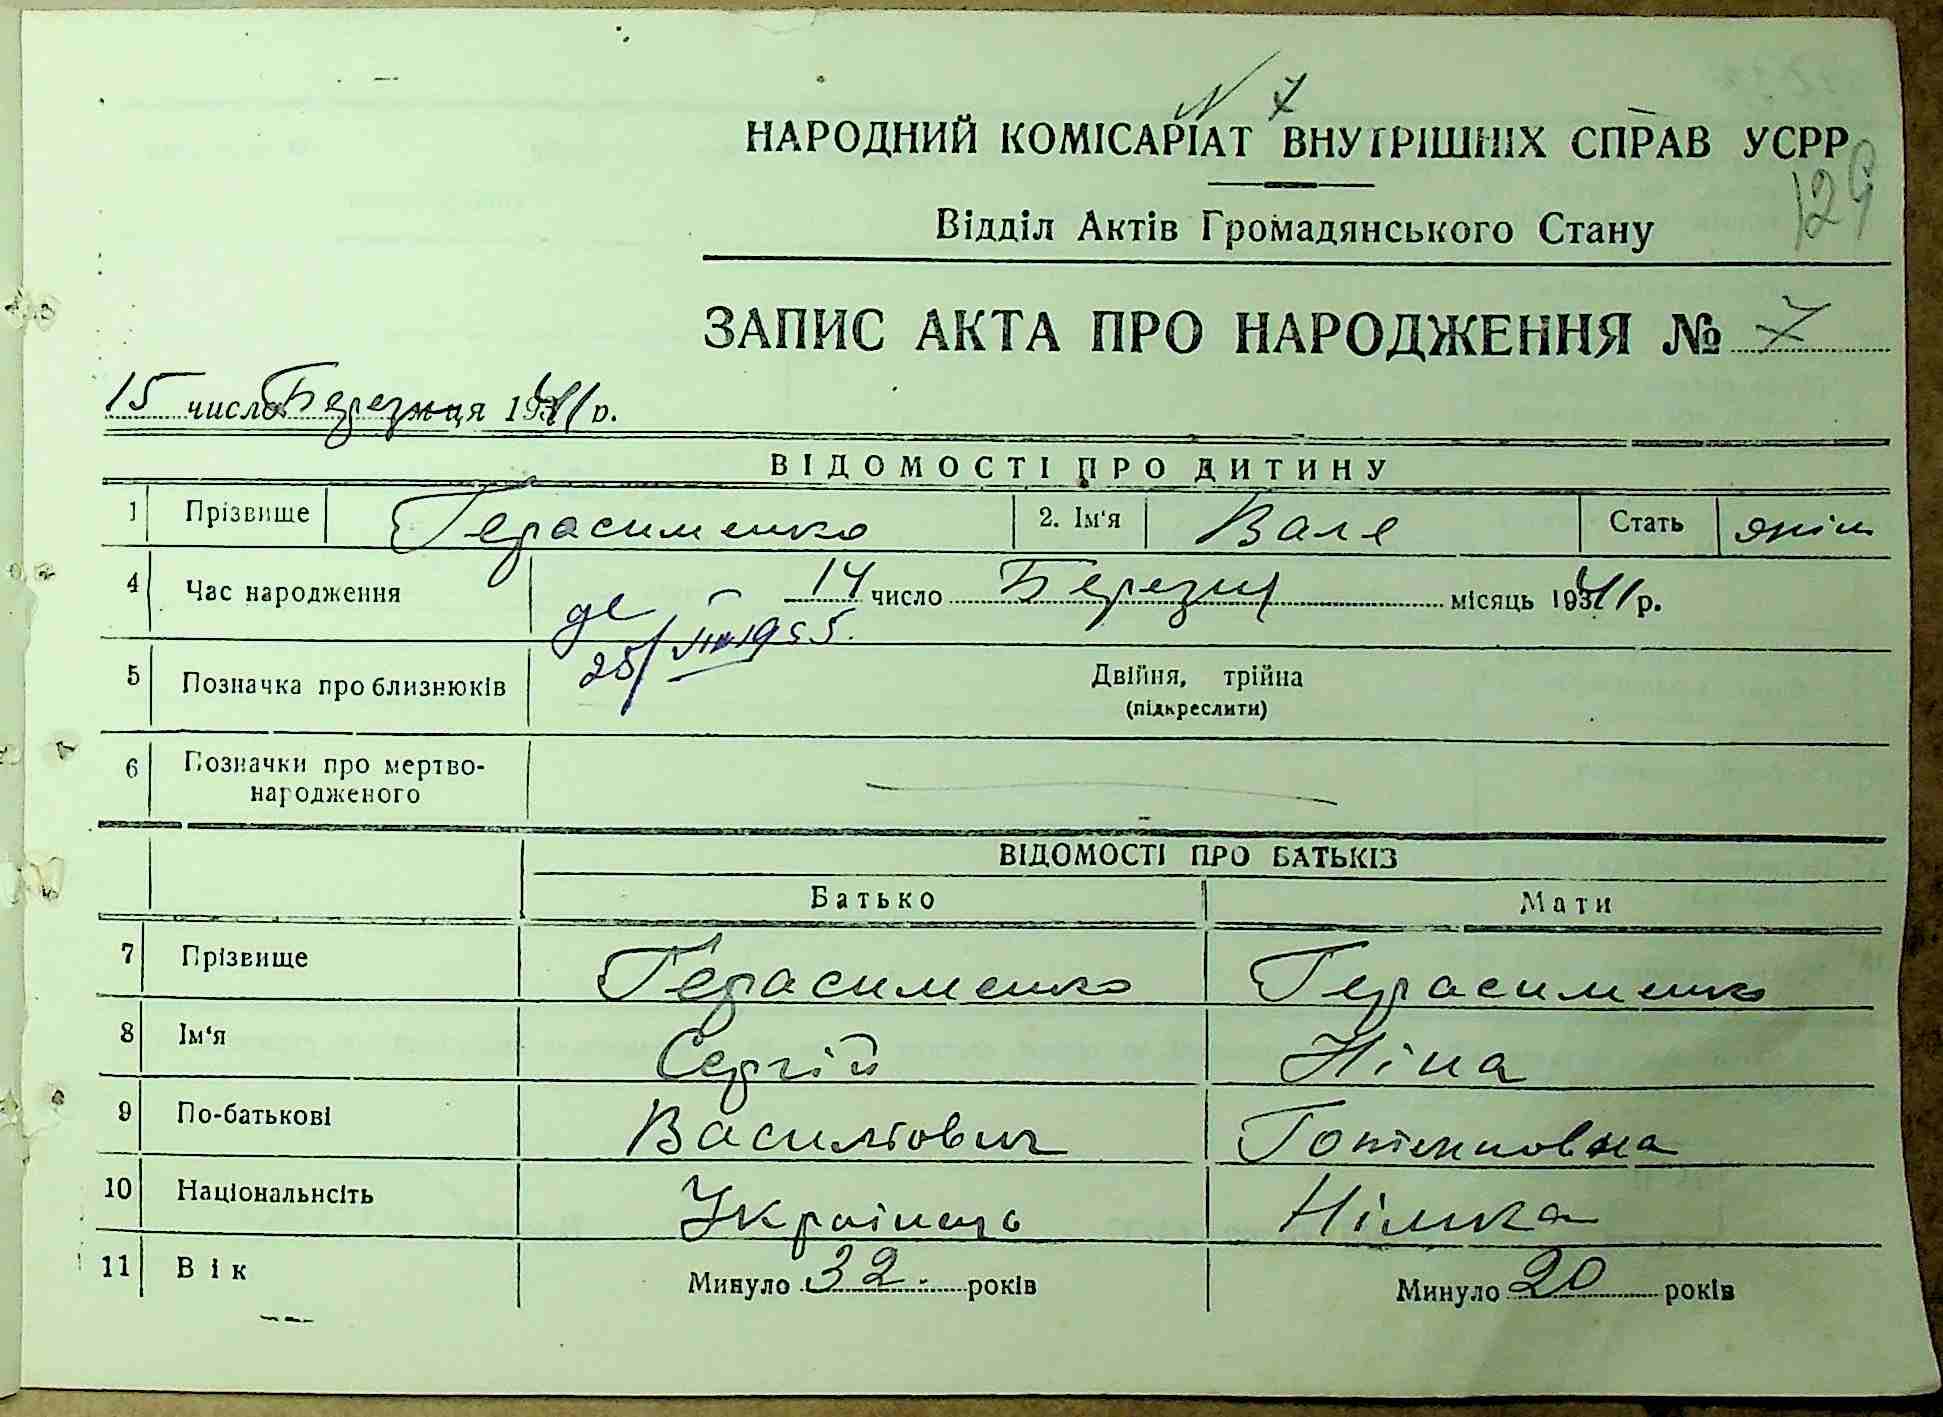 № 7
НАРОДНИЙ КОМІСАРІАТ ВНУТРІШНІХ СПРАВ УСРР
129
Відділ Актів Громадянського Стану
ЗАПИС АКТА ПРО НАРОДЖЕННЯ № 7
15 число Березня 1941 р.
ВІДОМОСТІ ПРО ДИТИНУ
1 Прізвище Герасименко 2. Ім'я Валя Стать жін
4 Час народження 14 число Березня місяць 1941 р.
25/ 1955.
5 Позначка про близнюків Двійня, трійна
(підкреслити)
6 Позначки про мертво-
народженого
ВІДОМОСТІ ПРО БАТЬКІВ
Батько Мати
7 Прізвище Герасименко Герасименко
8 Ім'я Сергій Ніна
9 По-батькові Васильович
10 Національнсіть Українець Німка
11 Вік Минуло 32 років Минуло 20 років